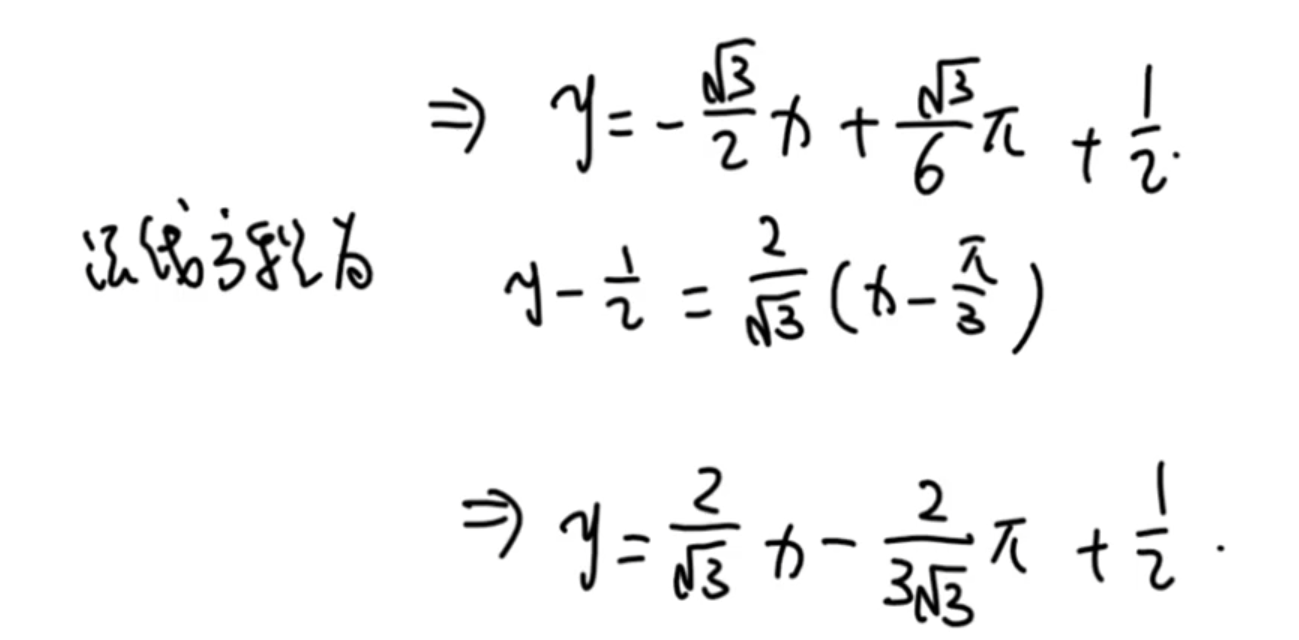 ⇒ y = -√3/2 x + √3/6 π + 1/2.
法线方程为 y - 1/2 = 2/√3 (x - π/3)
⇒ y = 2/√3 x - 2/(3√3) π + 1/2.